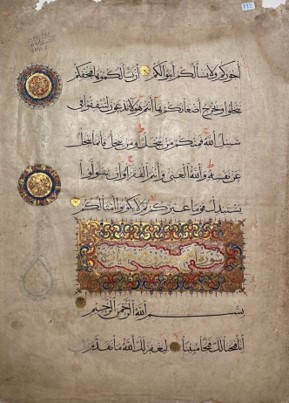 أجوركم ولا يسألكم أموالكم إن يسألكموها فيحفكم
تبخلوا ويخرج أضغانكم هأنتم هؤلاء تدعون لتنفقوا في
سبيل الله فمنكم من يبخل ومن يبخل فإنما يبخل
عن نفسه والله الغني وأنتم الفقراء وإن تتولوا
يستبدل قوما غيركم ثم لا يكونوا أمثالكم
بسم الله الرحمن الرحيم
إنا فتحنا لك فتحا مبينا ليغفر لك الله ما تقدم